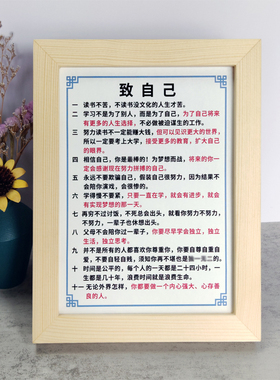 致自己
一 读书不苦，不读书没文化的人生才苦。
二 学习不是为了别人，而是为了自己，为了自己将来
有更多的人生选择，不必做被迫谋生的工作。
三 努力读书不一定能赚大钱，但可以见识更大的世界，
所以一定要考上大学，接受更多的教育，扩大自己
的眼界。
四 相信自己，你是最棒的！为梦想而战，将来的你一
定会感谢现在努力拼搏的自己。
五 永远不要欺骗自己，假装自己很努力，因为结果不
会陪你演戏，会很惨的。
六 学得慢不要紧，只要一直在学，就会有进步，就会
有实现梦想的那一天。
七 再穷不过讨饭，不死总会出头，就看你努力不努力，
不努力，一辈子也休想出头。
八 父母不会陪你过一辈子，你要尽早学会独立，独立
生活，独立思考。
九 并不是所有的人都喜欢你尊重你，你要自尊自重自
爱，不要自轻自贱，须知你再不堪也是独一无二的。
十 时间是公平的，每个人的一天都是二十四小时，一
生都是几十年，浪费时间就是浪费生命。
十一 无论外界怎样，你都要做一个内心强大、心存善
良的人。